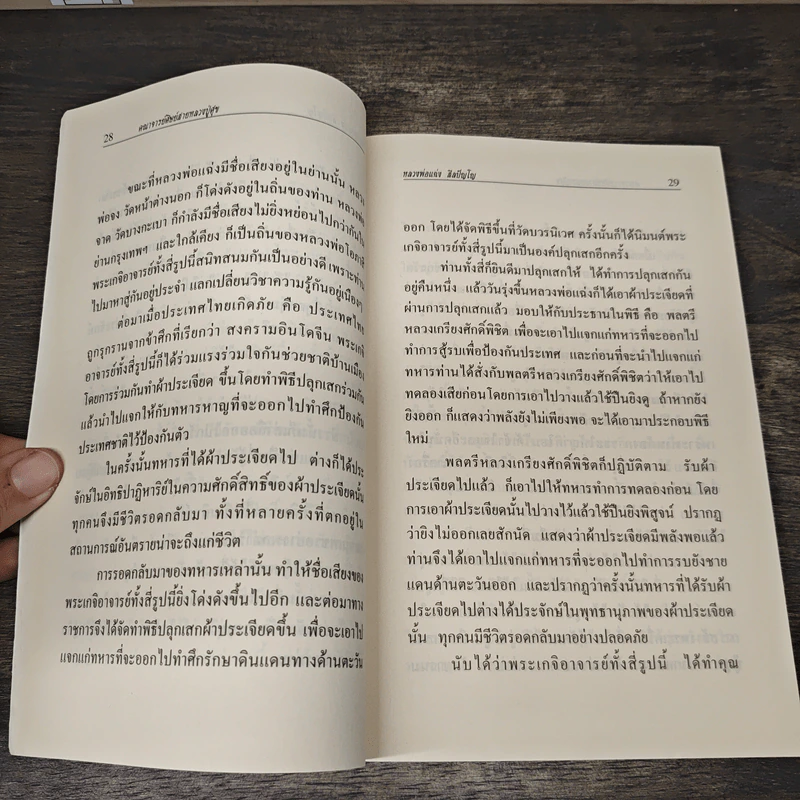 28
คณาจารย์ศิษย์สายหลวงปู่ศุข
ขณะที่หลวงพ่อแฉ่งมีชื่อเสียงอยู่ในย่านนั้น หลวง
พ่อจง วัดหน้าต่างนอก ก็โด่งดังอยู่ในถิ่นของท่าน หลวงพ่อ
จาด วัดบางกะเบา ก็กำลังมีชื่อเสียงไม่ยิ่งหย่อนไปกว่ากันใน
ย่านกรุงเทพฯ และใกล้เคียง ก็เป็นถิ่นของหลวงพ่อโอภาสี
พระเกจิอาจารย์ทั้งสี่รูปนี้สนิทสนมกันเป็นอย่างดี เพราะท่าน
ไปมาหาสู่กันอยู่ประจำ แลกเปลี่ยนวิชาความรู้กันอยู่เนืองๆ
ต่อมาเมื่อประเทศไทยเกิดภัย คือ ประเทศไทย
ถูกรุกรานจากข้าศึกที่เรียกว่า สงครามอินโดจีน พระเกจิ
อาจารย์ทั้งสี่รูปนี้ก็ได้ร่วมแรงร่วมใจกันช่วยชาติบ้านเมือง
โดยการร่วมกันทำผ้าประเจียด ขึ้นโดยทำพิธีปลุกเสกร่วมกัน
แล้วนำไปแจกให้กับทหารหาญที่จะออกไปทำศึกป้องกัน
ประเทศชาติไว้ป้องกันตัว
ในครั้งนั้นทหารที่ได้ผ้าประเจียดไป ต่างก็ได้ประ
จักษ์ในอิทธิปาฏิหาริย์ในความศักดิ์สิทธิ์ของผ้าประเจียดนั้น
ทุกคนจึงมีชีวิตรอดกลับมา ทั้งที่หลายครั้งที่ตกอยู่ใน
สถานการณ์อันตรายน่าจะถึงแก่ชีวิต
การรอดกลับมาของทหารเหล่านั้น ทำให้ชื่อเสียงของ
พระเกจิอาจารย์ทั้งสี่รูปนี้ยิ่งโด่งดังขึ้นไปอีก และต่อมาทาง
ราชการจึงได้จัดทำพิธีปลุกเสกผ้าประเจียดขึ้น เพื่อจะเอาไป
แจกแก่ทหารที่จะออกไปทำศึกรักษาดินแดนทางด้านตะวัน
หลวงพ่อแฉ่ง ศีลปัญโญ
29
ออก โดยได้จัดพิธีขึ้นที่วัดบวรนิเวศ ครั้งนั้นก็ได้นิมนต์พระ
เกจิอาจารย์ทั้งสี่รูปนี้มาเป็นองค์ปลุกเสกอีกครั้ง
ท่านทั้งสี่ก็ยินดีมาปลุกเสกให้ ได้ทำการปลุกเสกกัน
อยู่คืนหนึ่ง แล้ววันรุ่งขึ้นหลวงพ่อแฉ่งก็ได้เอาผ้าประเจียดที่
ผ่านการปลุกเสกแล้ว มอบให้กับประธานในพิธี คือ พลตรี
หลวงเกรียงศักดิ์พิชิต เพื่อจะเอาไปแจกแก่ทหารที่จะออกไป
ทำการสู้รบเพื่อป้องกันประเทศ และก่อนที่จะนำไปแจกแก่
ทหารท่านได้สั่งกับพลตรีหลวงเกรียงศักดิ์พิชิตว่าให้เอาไป
ทดลองเสียก่อนโดยการเอาไปวางแล้วใช้ปืนยิงดู ถ้าหากยัง
ยิงออก ก็แสดงว่าพลังยังไม่เพียงพอ จะได้เอามาประกอบพิธี
ใหม่
พลตรีหลวงเกรียงศักดิ์พิชิตก็ปฏิบัติตาม รับผ้า
ประเจียดไปแล้ว ก็เอาไปให้ทหารทำการทดลองก่อน โดย
การเอาผ้าประเจียดนั้นไปวางไว้แล้วใช้ปืนยิงพิสูจน์ ปรากฏ
ว่ายิงไม่ออกเลยสักนัด แสดงว่าผ้าประเจียดมีพลังพอแล้ว
ท่านจึงได้เอาไปแจกแก่ทหารที่จะออกไปทำการรบยังชาย
แดนด้านตะวันออก และปรากฏว่าครั้งนั้นทหารที่ได้รับผ้า
ประเจียดไปต่างได้ประจักษ์ในพุทธานุภาพของผ้าประเจียด
นั้น ทุกคนมีชีวิตรอดกลับมาอย่างปลอดภัย
นับได้ว่าพระเกจิอาจารย์ทั้งสี่รูปนี้ ได้ทำคุณ